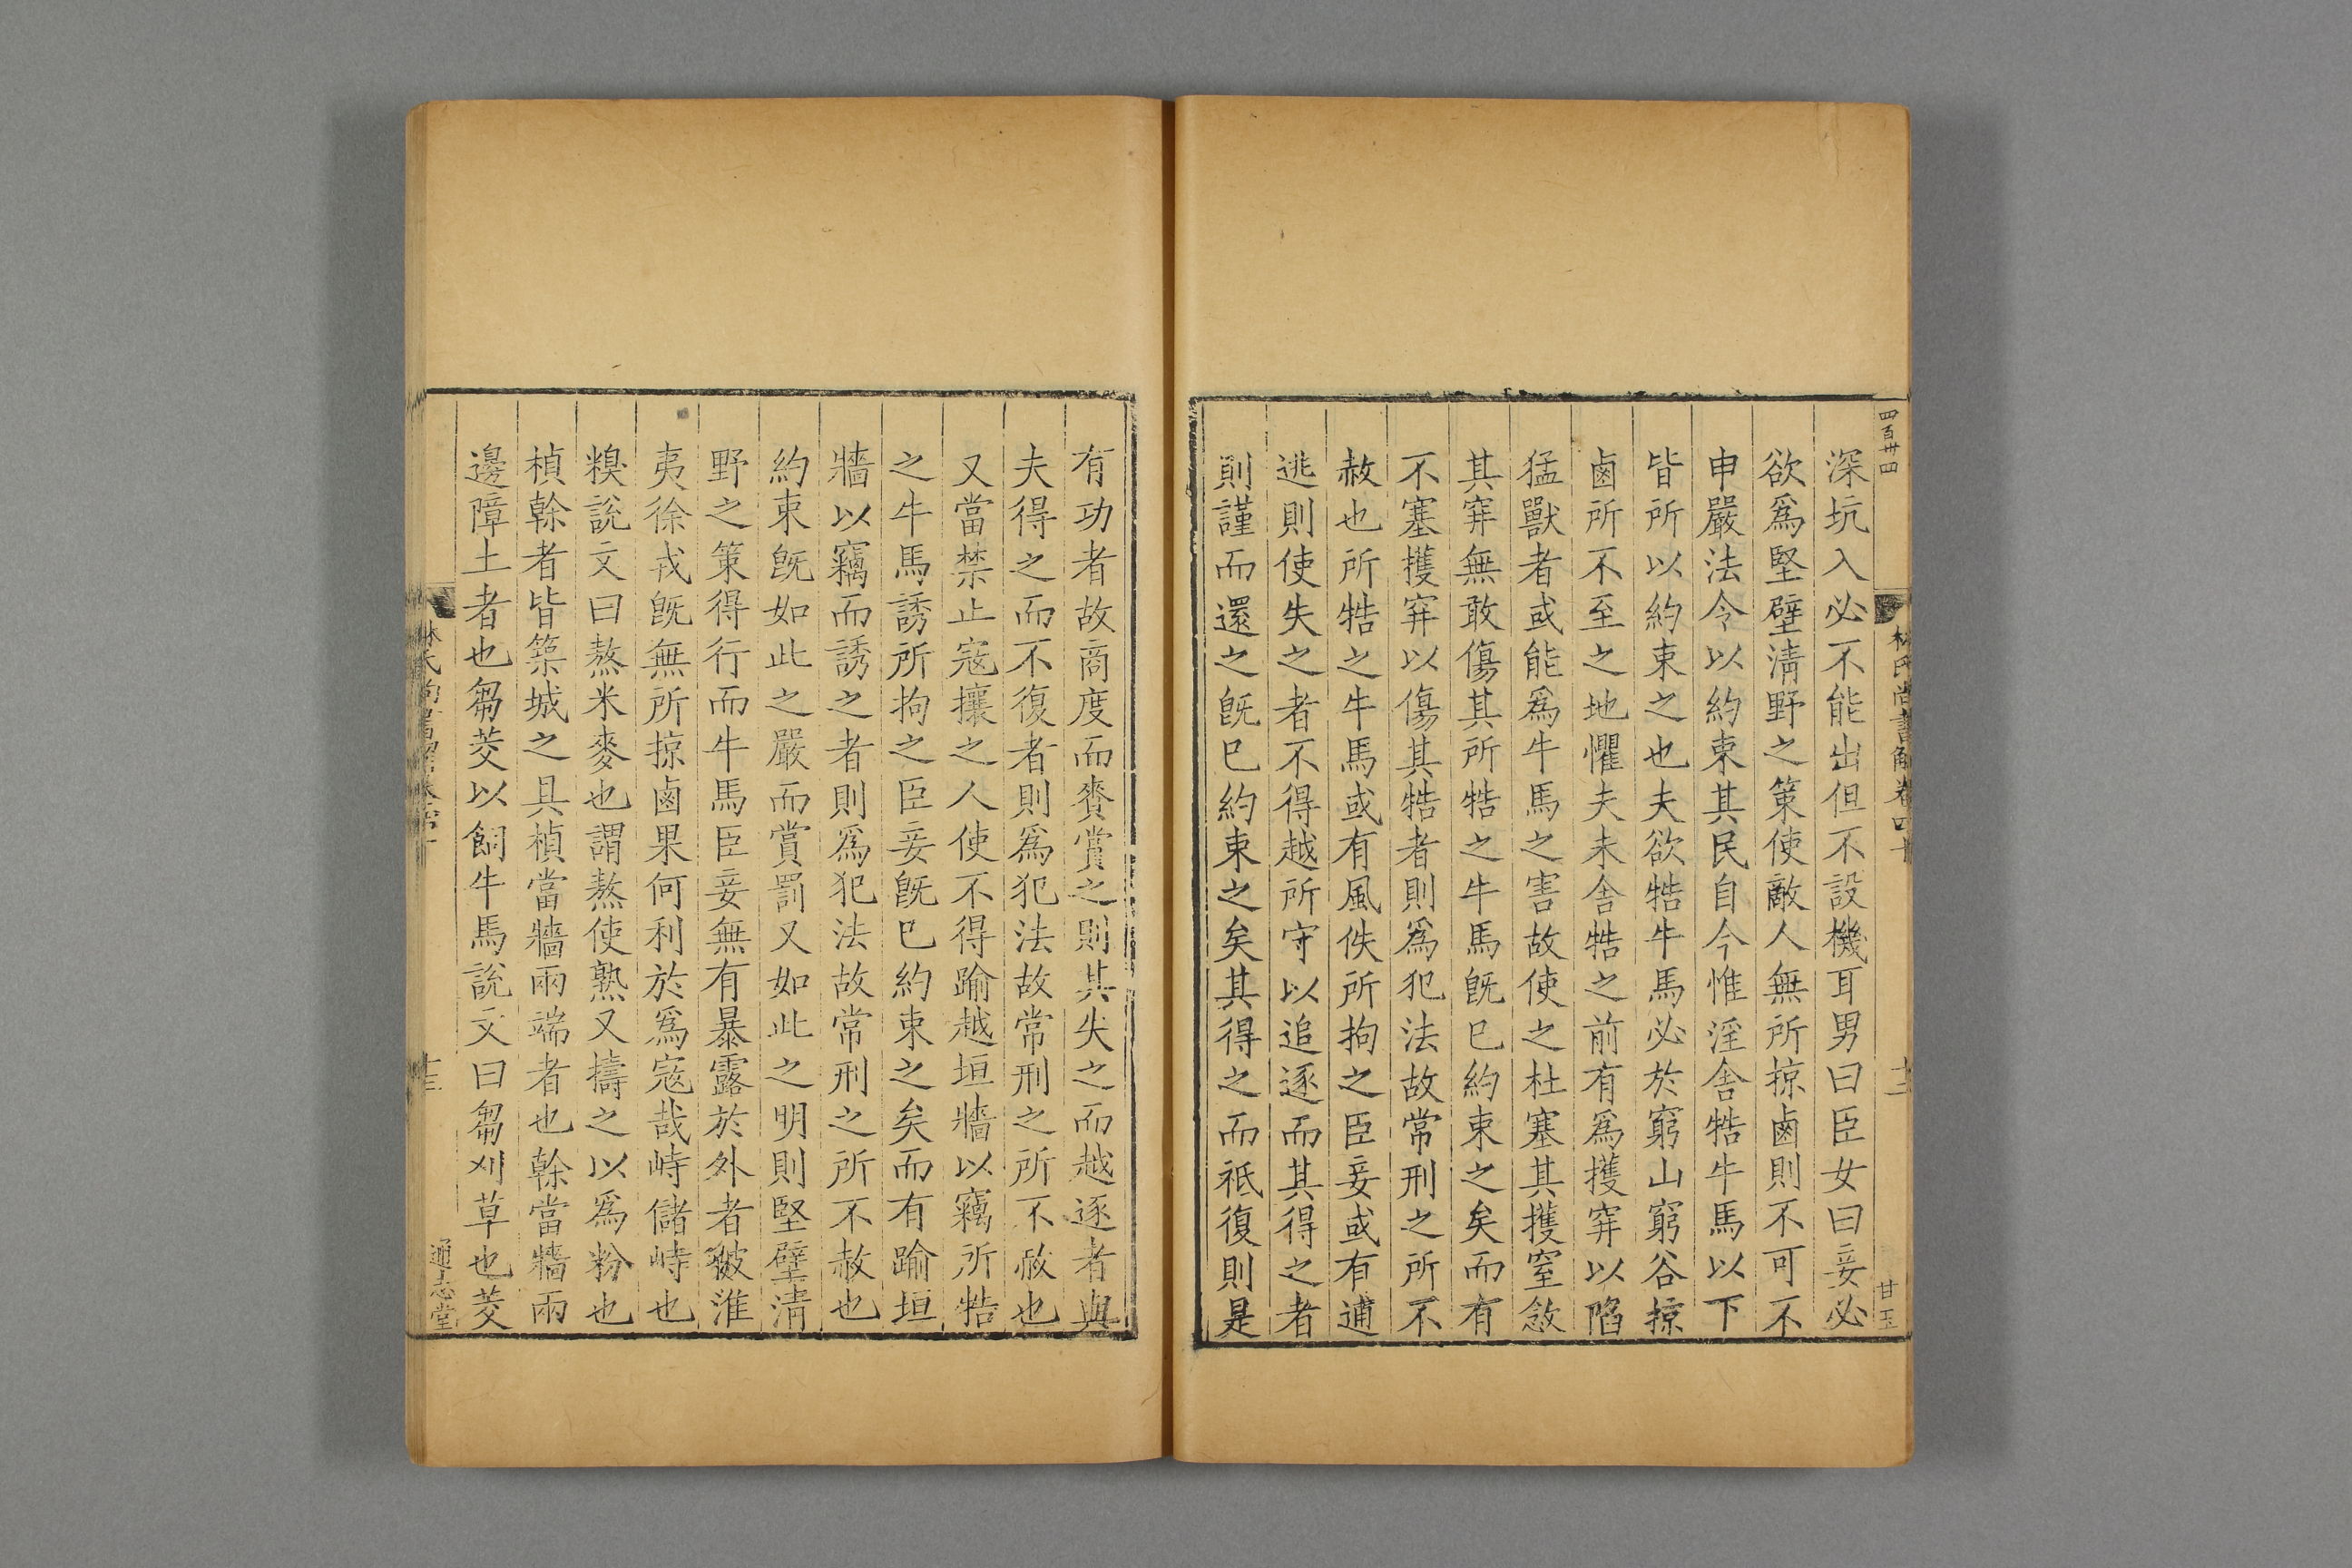 四百卌四
林氏尚書解卷四十
十二
甘玉
深坑入必不能出但不設機耳男曰臣女曰妾必
欲爲堅壁清野之策使敵人無所掠鹵則不可不
申嚴法令以約束其民自今惟淫舍牿牛馬以下
皆所以約束之也夫欲牿牛馬必於窮山窮谷掠
鹵所不至之地懼夫未舍牿之前有爲擭穽以陷
猛獸者或能爲牛馬之害故使之杜塞其擭窒斂
其穽無敢傷其所牿之牛馬旣已約束之矣而有
不塞擭穽以傷其牿者則爲犯法故常刑之所不
赦也所牿之牛馬或有風佚所拘之臣妾或有逋
逃則使失之者不得越所守以追逐而其得之者
則謹而還之旣已約束之矣其得之而祗復則是
有功者故商度而賚賞之則其失之而越逐者與
夫得之而不復者則爲犯法故常刑之所不赦也
又當禁止寇攘之人使不得踰越垣牆以竊所牿
之牛馬誘所拘之臣妾旣已約束之矣而有踰垣
牆以竊而誘之者則爲犯法故常刑之所不赦也
約束旣如此之嚴而賞罰又如此之明則堅壁清
野之策得行而牛馬臣妾無有暴露於外者彼淮
夷徐戎旣無所掠鹵果何利於爲寇哉峙儲峙也
糗說文曰熬米麥也謂熬使熟又擣之以爲粉也
楨榦者皆築城之具楨當牆兩端者也榦當牆兩
邊障土者也芻茭以飼牛馬說文曰芻刈草也茭
林氏尚書解卷
十三
通志堂